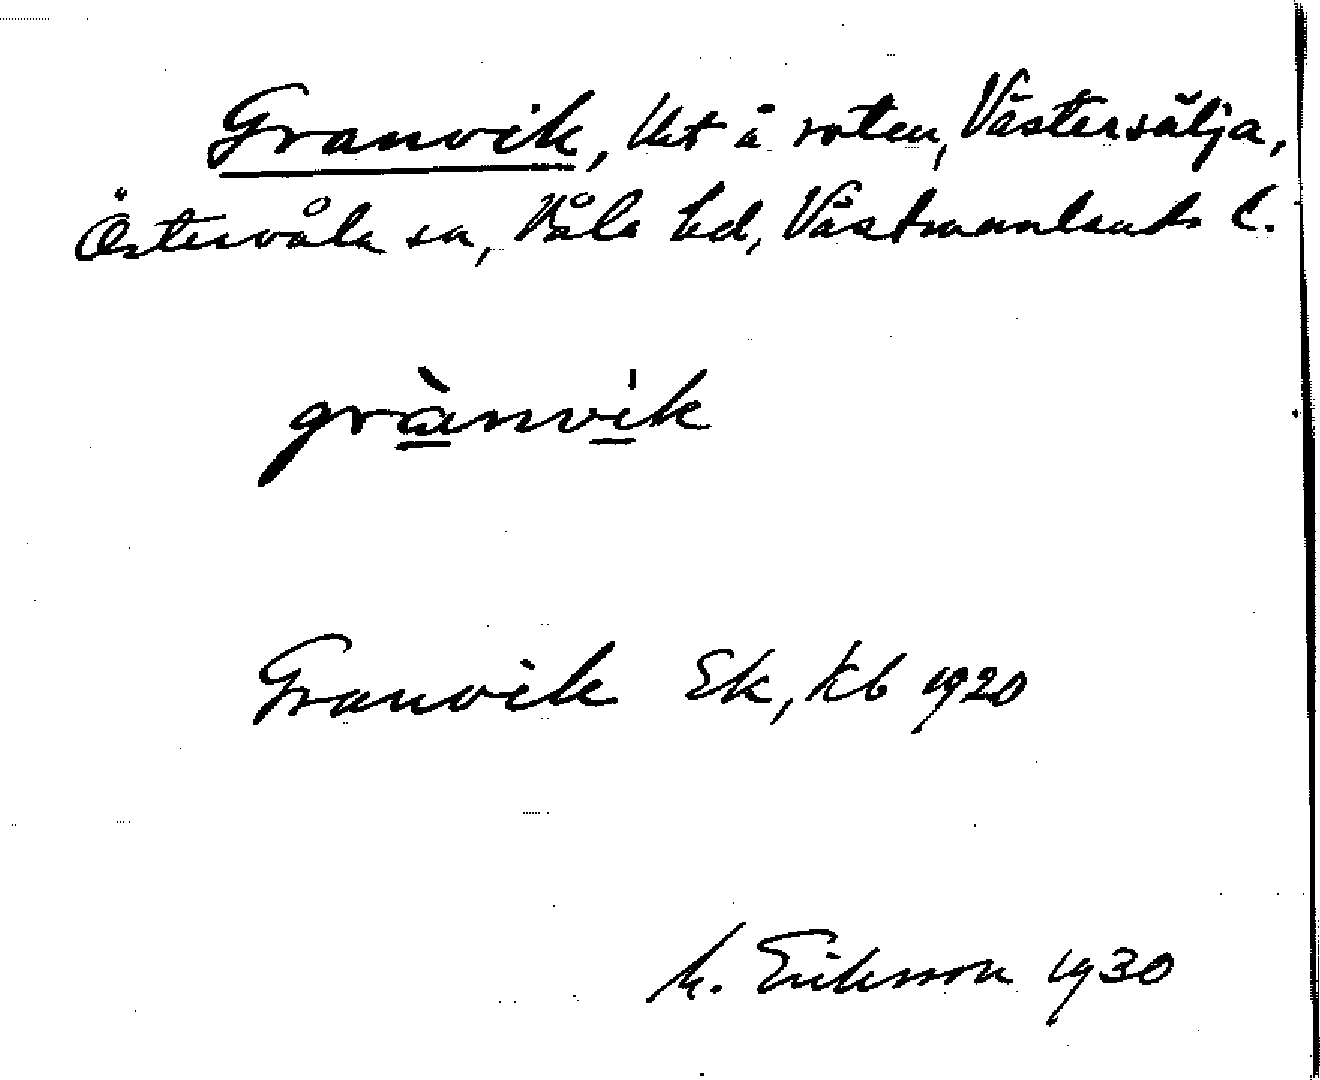 Granvik, Ust å roten, Västersälja,
Östervåla sn, Våla hd, Västmanlands l.
grànvik
Granvik Ek, Kb 1920
M. Eriksson 1930